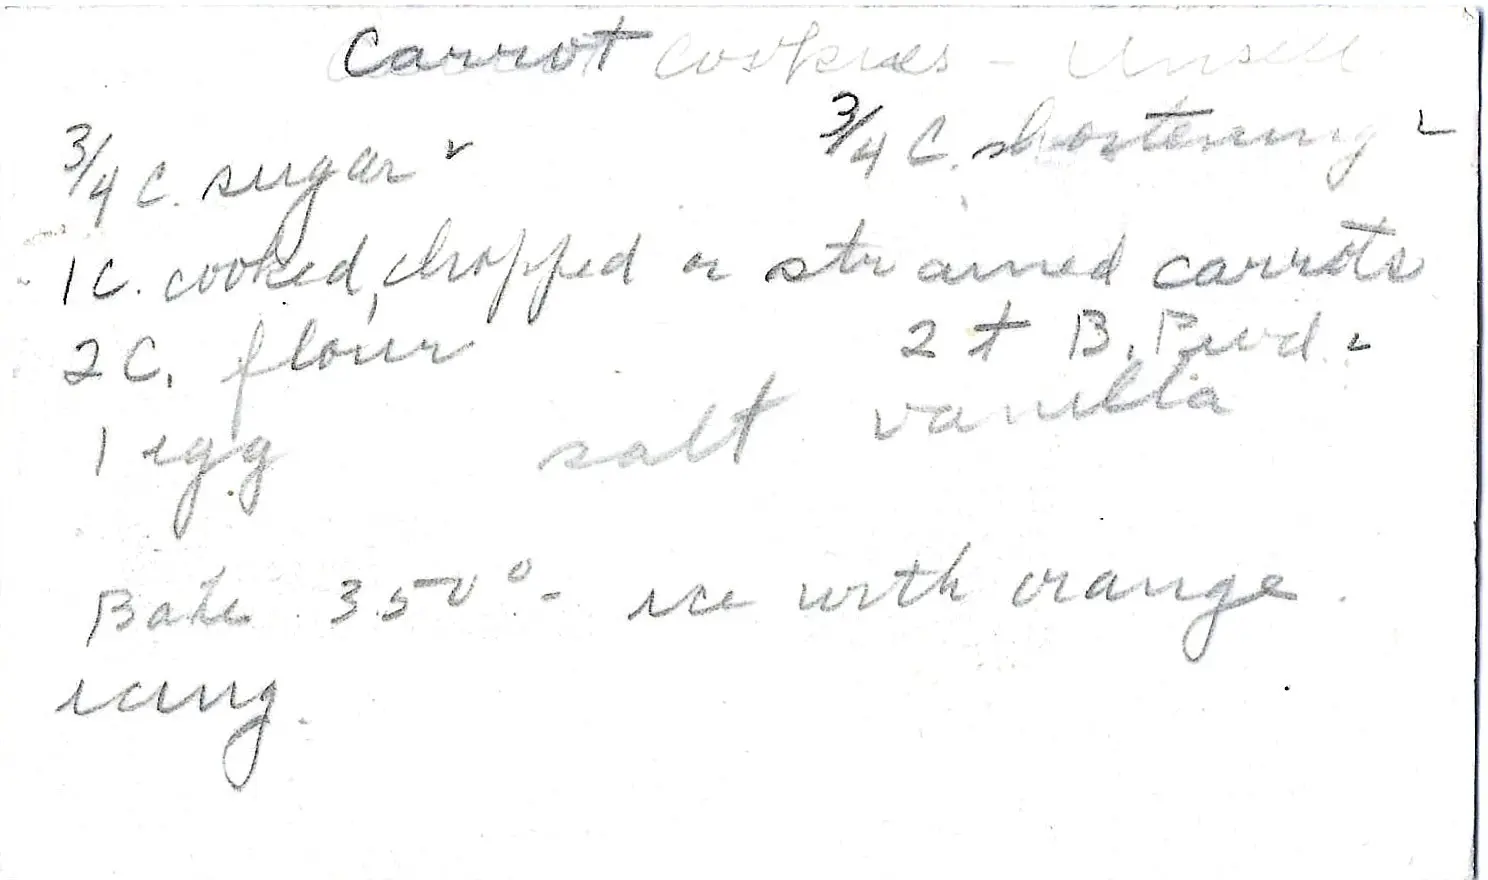 Carrot cookies - Unsell
3/4 C. sugar ✓ 3/4 C. shortening ✓
1 C. cooked, chopped or strained carrots
2 C. flour 2 t B. Powd. ✓
1 egg salt vanilla
Bake 350° - ice with orange
icing.